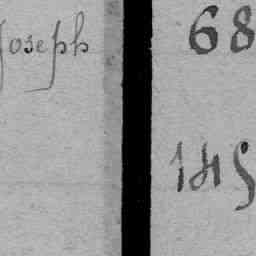 Joseph
68
145